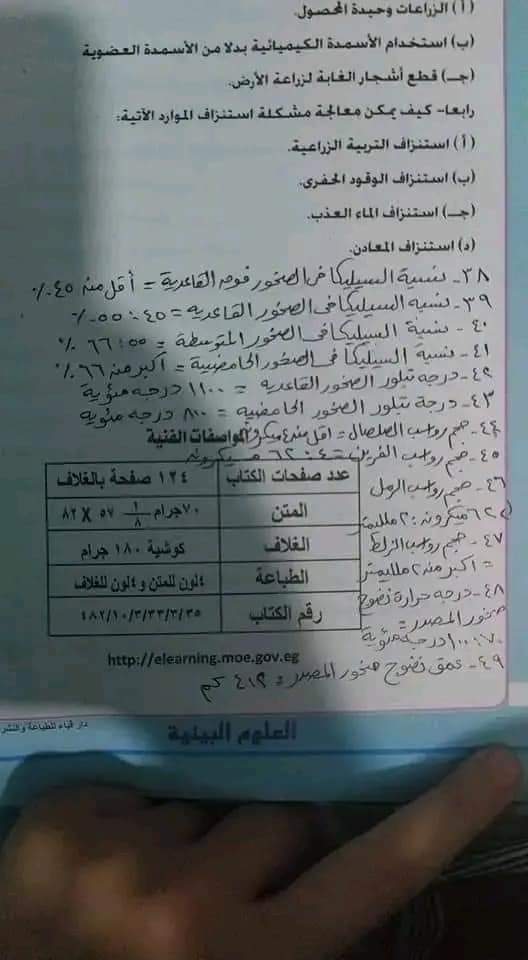 (أ) الزراعات وحيدة المحصول.
(ب) استخدام الأسمدة الكيميائية بدلا من الأسمدة العضوية
(جـ) قطع أشجار الغابة لزراعة الأرض.
رابعا- كيف يمكن معالجة مشكلة استنزاف الموارد الآتية:
(أ) استنزاف التربة الزراعية.
(ب) استنزاف الوقود الحفرى.
(جـ) استنزاف الماء العذب.
(د) استنزاف المعادن.
٣٨- نسبة السيليكا فى الصخور فوق القاعدية = أقل من ٤٥٪
٣٩- نسبه السيليكا فى الصخور القاعديه = ٤٥ : ٥٥٪
٤٠- نسبة السيليكا فى الصخور المتوسطة = ٥٥ : ٦٦٪
٤١- نسبة السيليكا فى الصخور الحامضية = أكبر من ٦٦٪
٤٢- درجه تبلور الصخور القاعديه = ١١٠٠ درجه مئوية
٤٣- درجة تبلور الصخور الحامضيه = ٨٠٠ درجه مئويه
٤٤- حجم رواسب الصلصال = اقل من ٤ ميكرون
المواصفات الفنية
٤٥- حجم رواسب الغرين = ٤ : ٦٢ ميكرونه
عدد صفحات الكتاب ١٢٤ صفحة بالغلاف
المتن ٧٠جرام ١/٨ ٥٧ X ٨٢
الغلاف كوشية ١٨٠ جرام
الطباعة ٤لون للمتن و ٤لون للغلاف
رقم الكتاب ٤٨٢/١٠/٣/٣٣/٣/٣٥
٤٦- حجم رواسب الرمل
= ٦٢ ميكرونه : ٢ ملليمتر
٤٧- حجم رواسب الزلط
= أكبر من ٢ ملليمتر
٤٨- درجه حرارة نضوج
صخور المصدر =
٧٠ : ١٠٠ درجه مئوية
http://elearning.moe.gov.eg
٤٩- عمق نضوج صخور المصدر = ٢ : ٤ كم
العلوم البيئية
دار قباء للطباعة والنشر